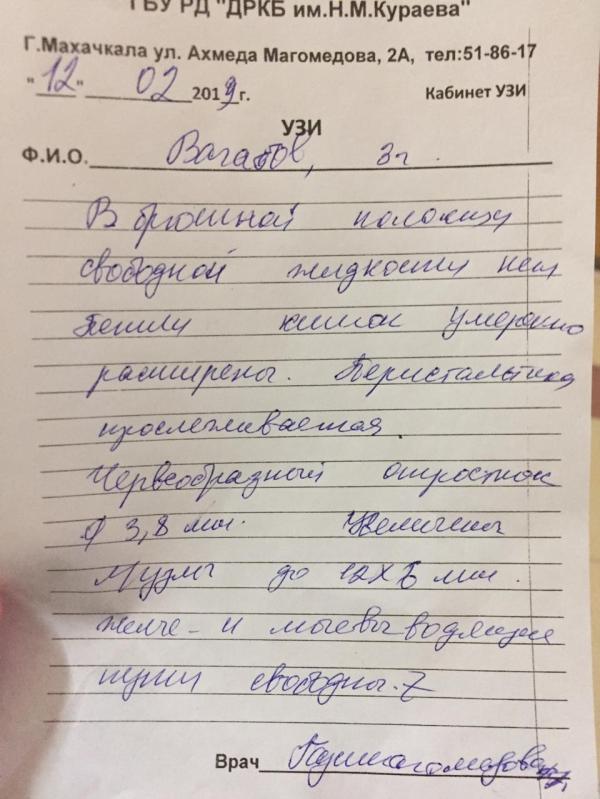 ГБУ РД "ДРКБ им.Н.М.Кураева"
Г.Махачкала ул. Ахмеда Магомедова, 2А, тел:51-86-17
"12" 02 2019г. Кабинет УЗИ
УЗИ
Ф.И.О. Вагабов, 3г.
В брюшной полости
свободной жидкости нет
Петли кишок умеренно
расширены. Перистальтика
прослеживается.
Червеобразный отросток
φ 3,8 мм. Увеличены
л/узлы до 12х5 мм.
Желче- и мочевыводящие
пути свободны.
Врач